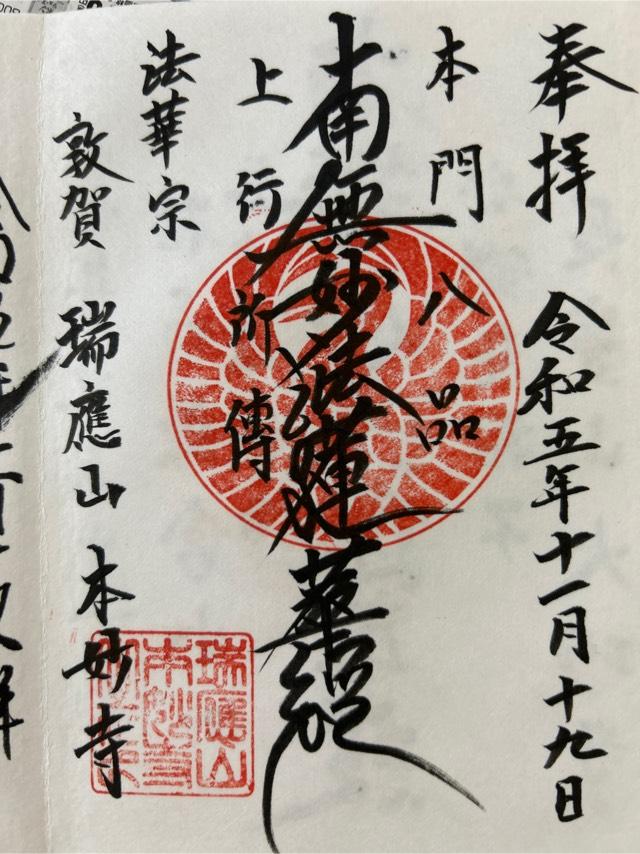 奉拝
令和五年十一月十九日
本門八品
南無妙法蓮華経
上行所傳
法華宗
敦賀
瑞應山 本妙寺
瑞應山
本妙寺